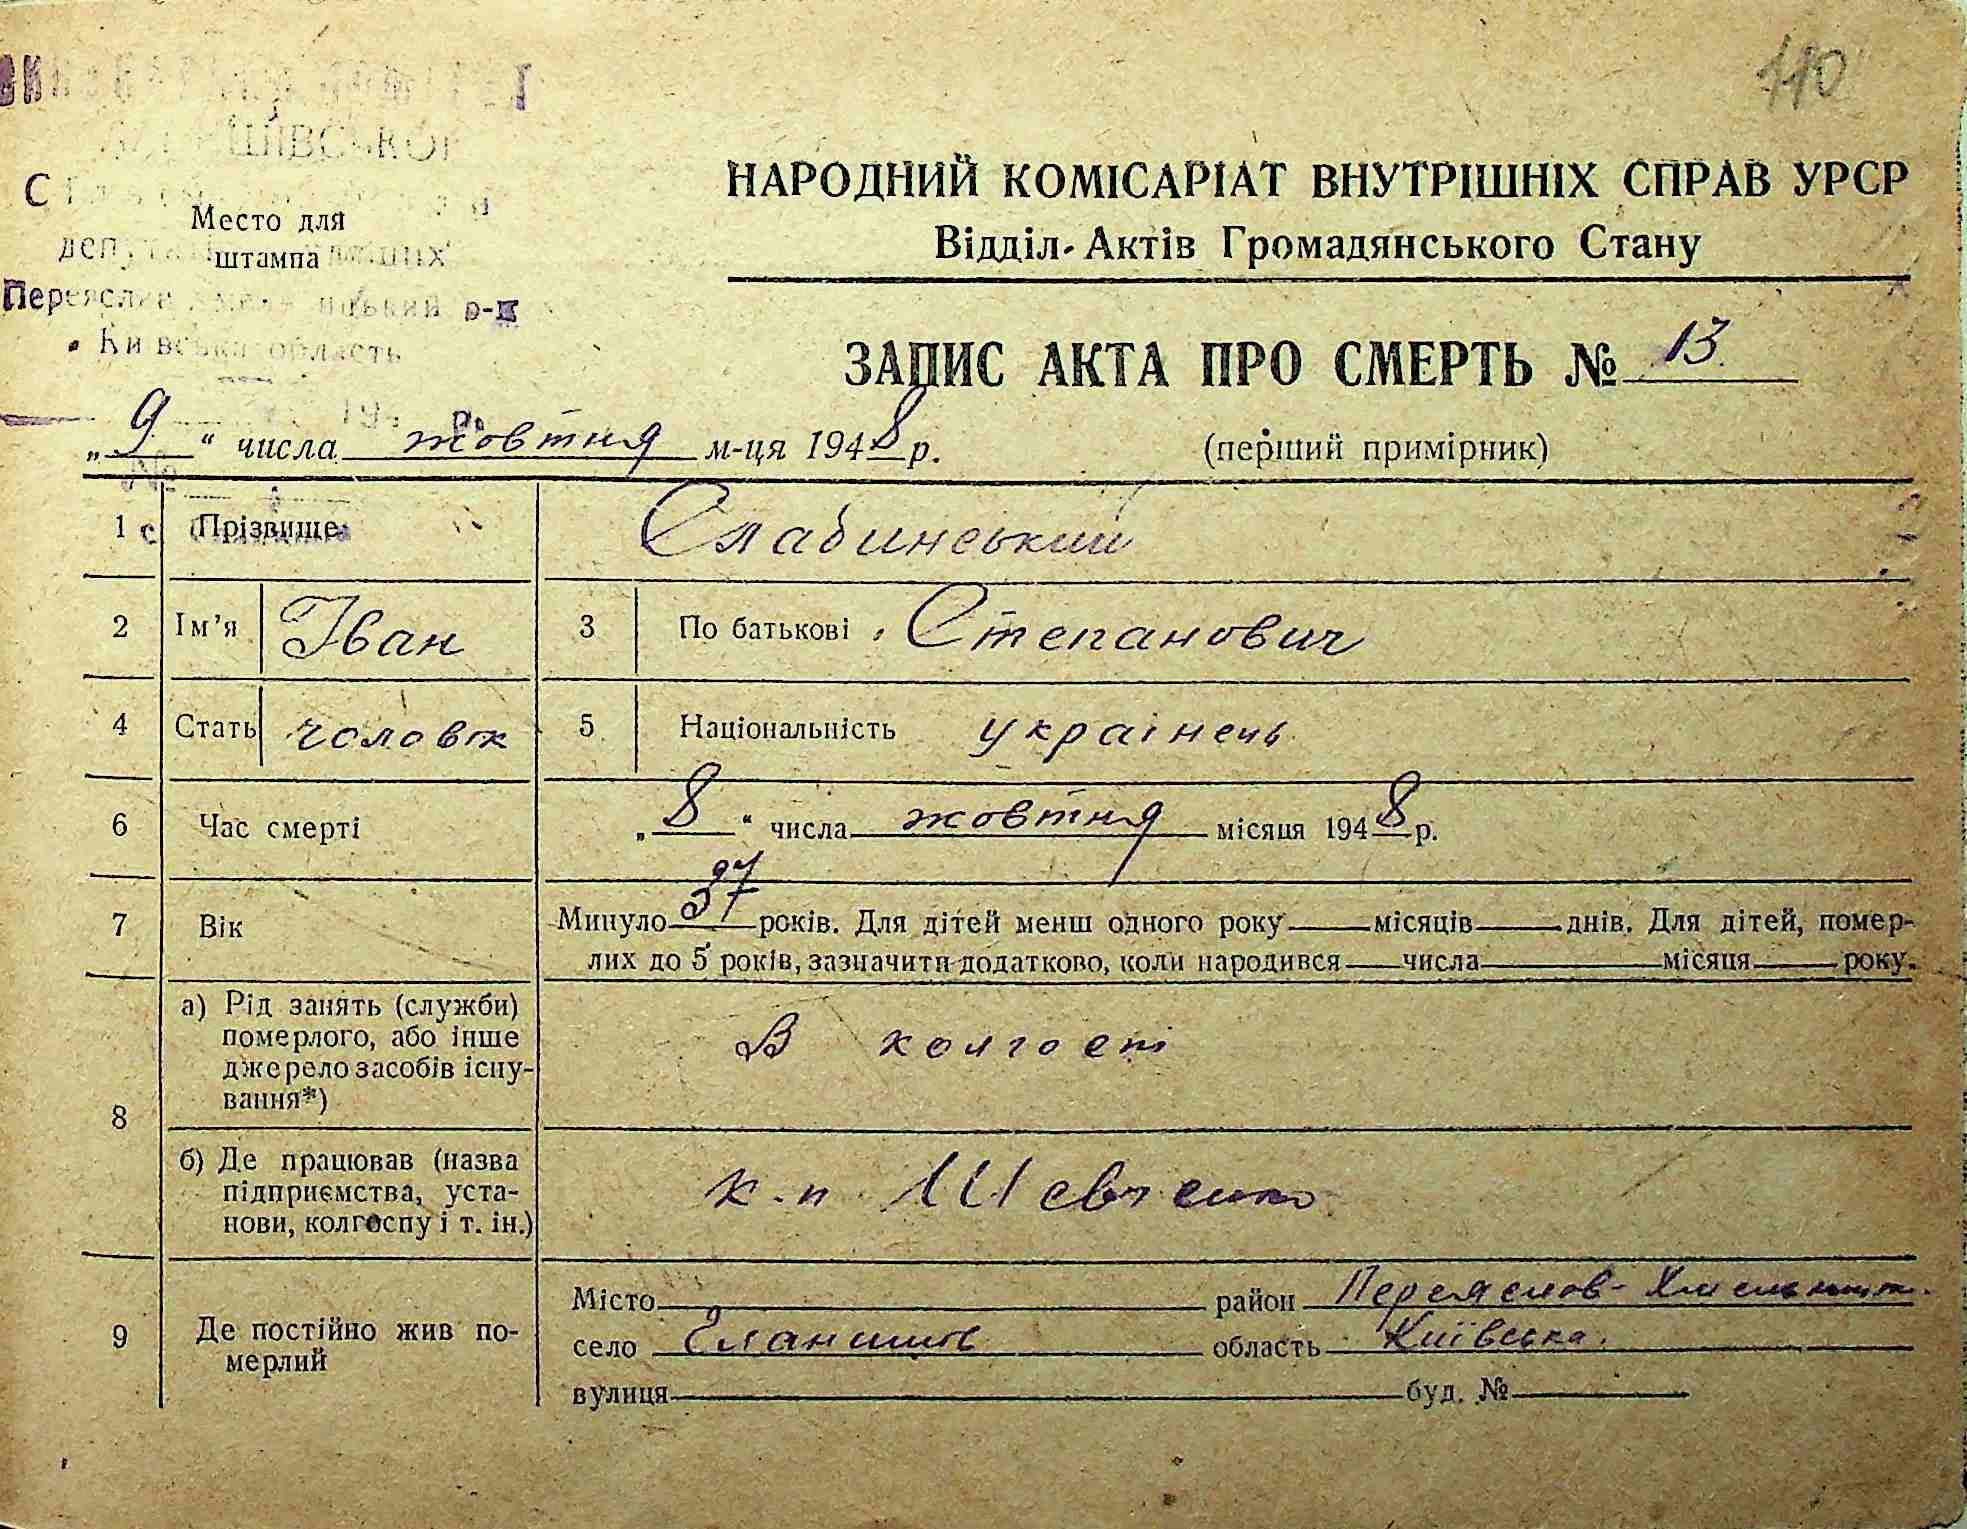 110
С
Место для
штампа
р-н
НАРОДНИЙ КОМІСАРІАТ ВНУТРІШНІХ СПРАВ УРСР
Відділ Актів Громадянського Стану
ЗАПИС АКТА ПРО СМЕРТЬ № 13
„9“ числа жовтня м-ця 1948 р.
(перший примірник)
1 Прізвище Слабинський
2 Ім’я Іван 3 По батькові Степанович
4 Стать чоловік 5 Національність українець
6 Час смерті „8“ числа жовтня місяця 1948 р.
7 Вік Минуло 37 років. Для дітей менш одного року місяців днів. Для дітей, помер-
лих до 5 років, зазначити додатково, коли народився числа місяця року.
8 а) Рід занять (служби)
померлого, або інше
джерело засобів існу-
вання*)
В колгоспі
б) Де працював (назва
підприємства, уста-
нови, колгоспу і т. ін.)
к-п Шевченко
9 Де постійно жив по-
мерлий
Місто район Переяслов-Хмельницк.
село область Київська.
вулиця буд. №